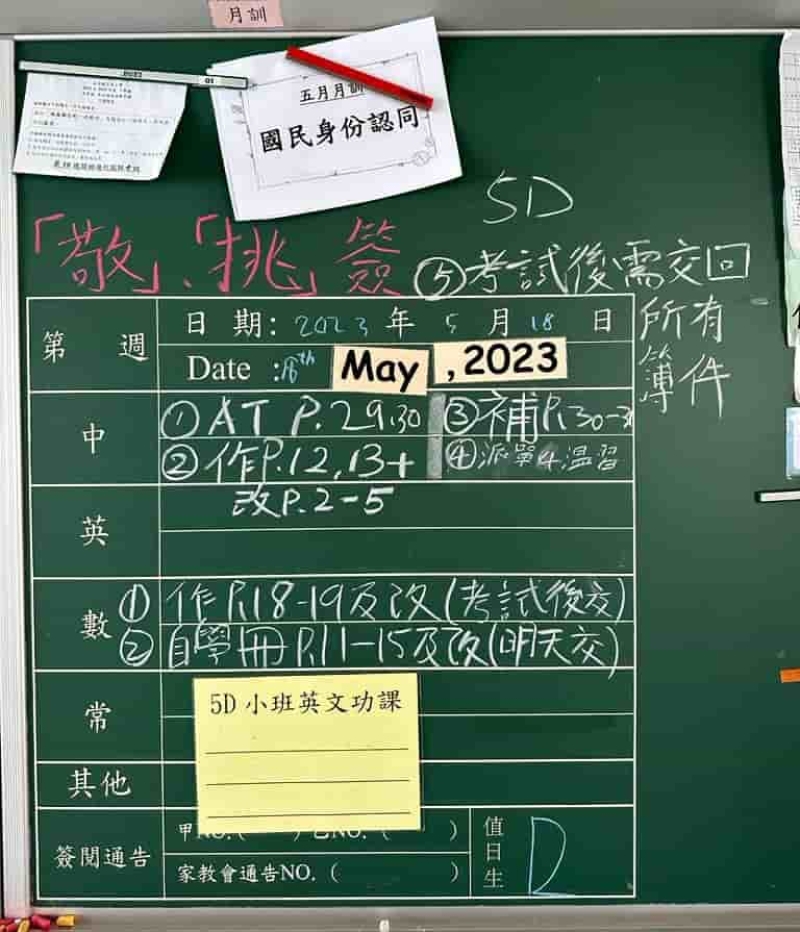 月訓
五月月訓
國民身份認同
5D
「敬」、「挑」簽
⑤考試後需交回
所有
簿件
第 週
日 期: 2023 年 5 月 18 日
Date :18th May , 2023
中
①AT P.29,30
③補P.30-31
②作P.12,13+
④派單4.溫習
改P.2-5
英
數
①作P.18-19及改(考試後交)
②自學冊P.11-15及改(明天交)
常
5D 小班英文功課
其他
簽閱通告
甲NO.( ) 乙NO. ( )
家教會通告NO. ( )
值日生